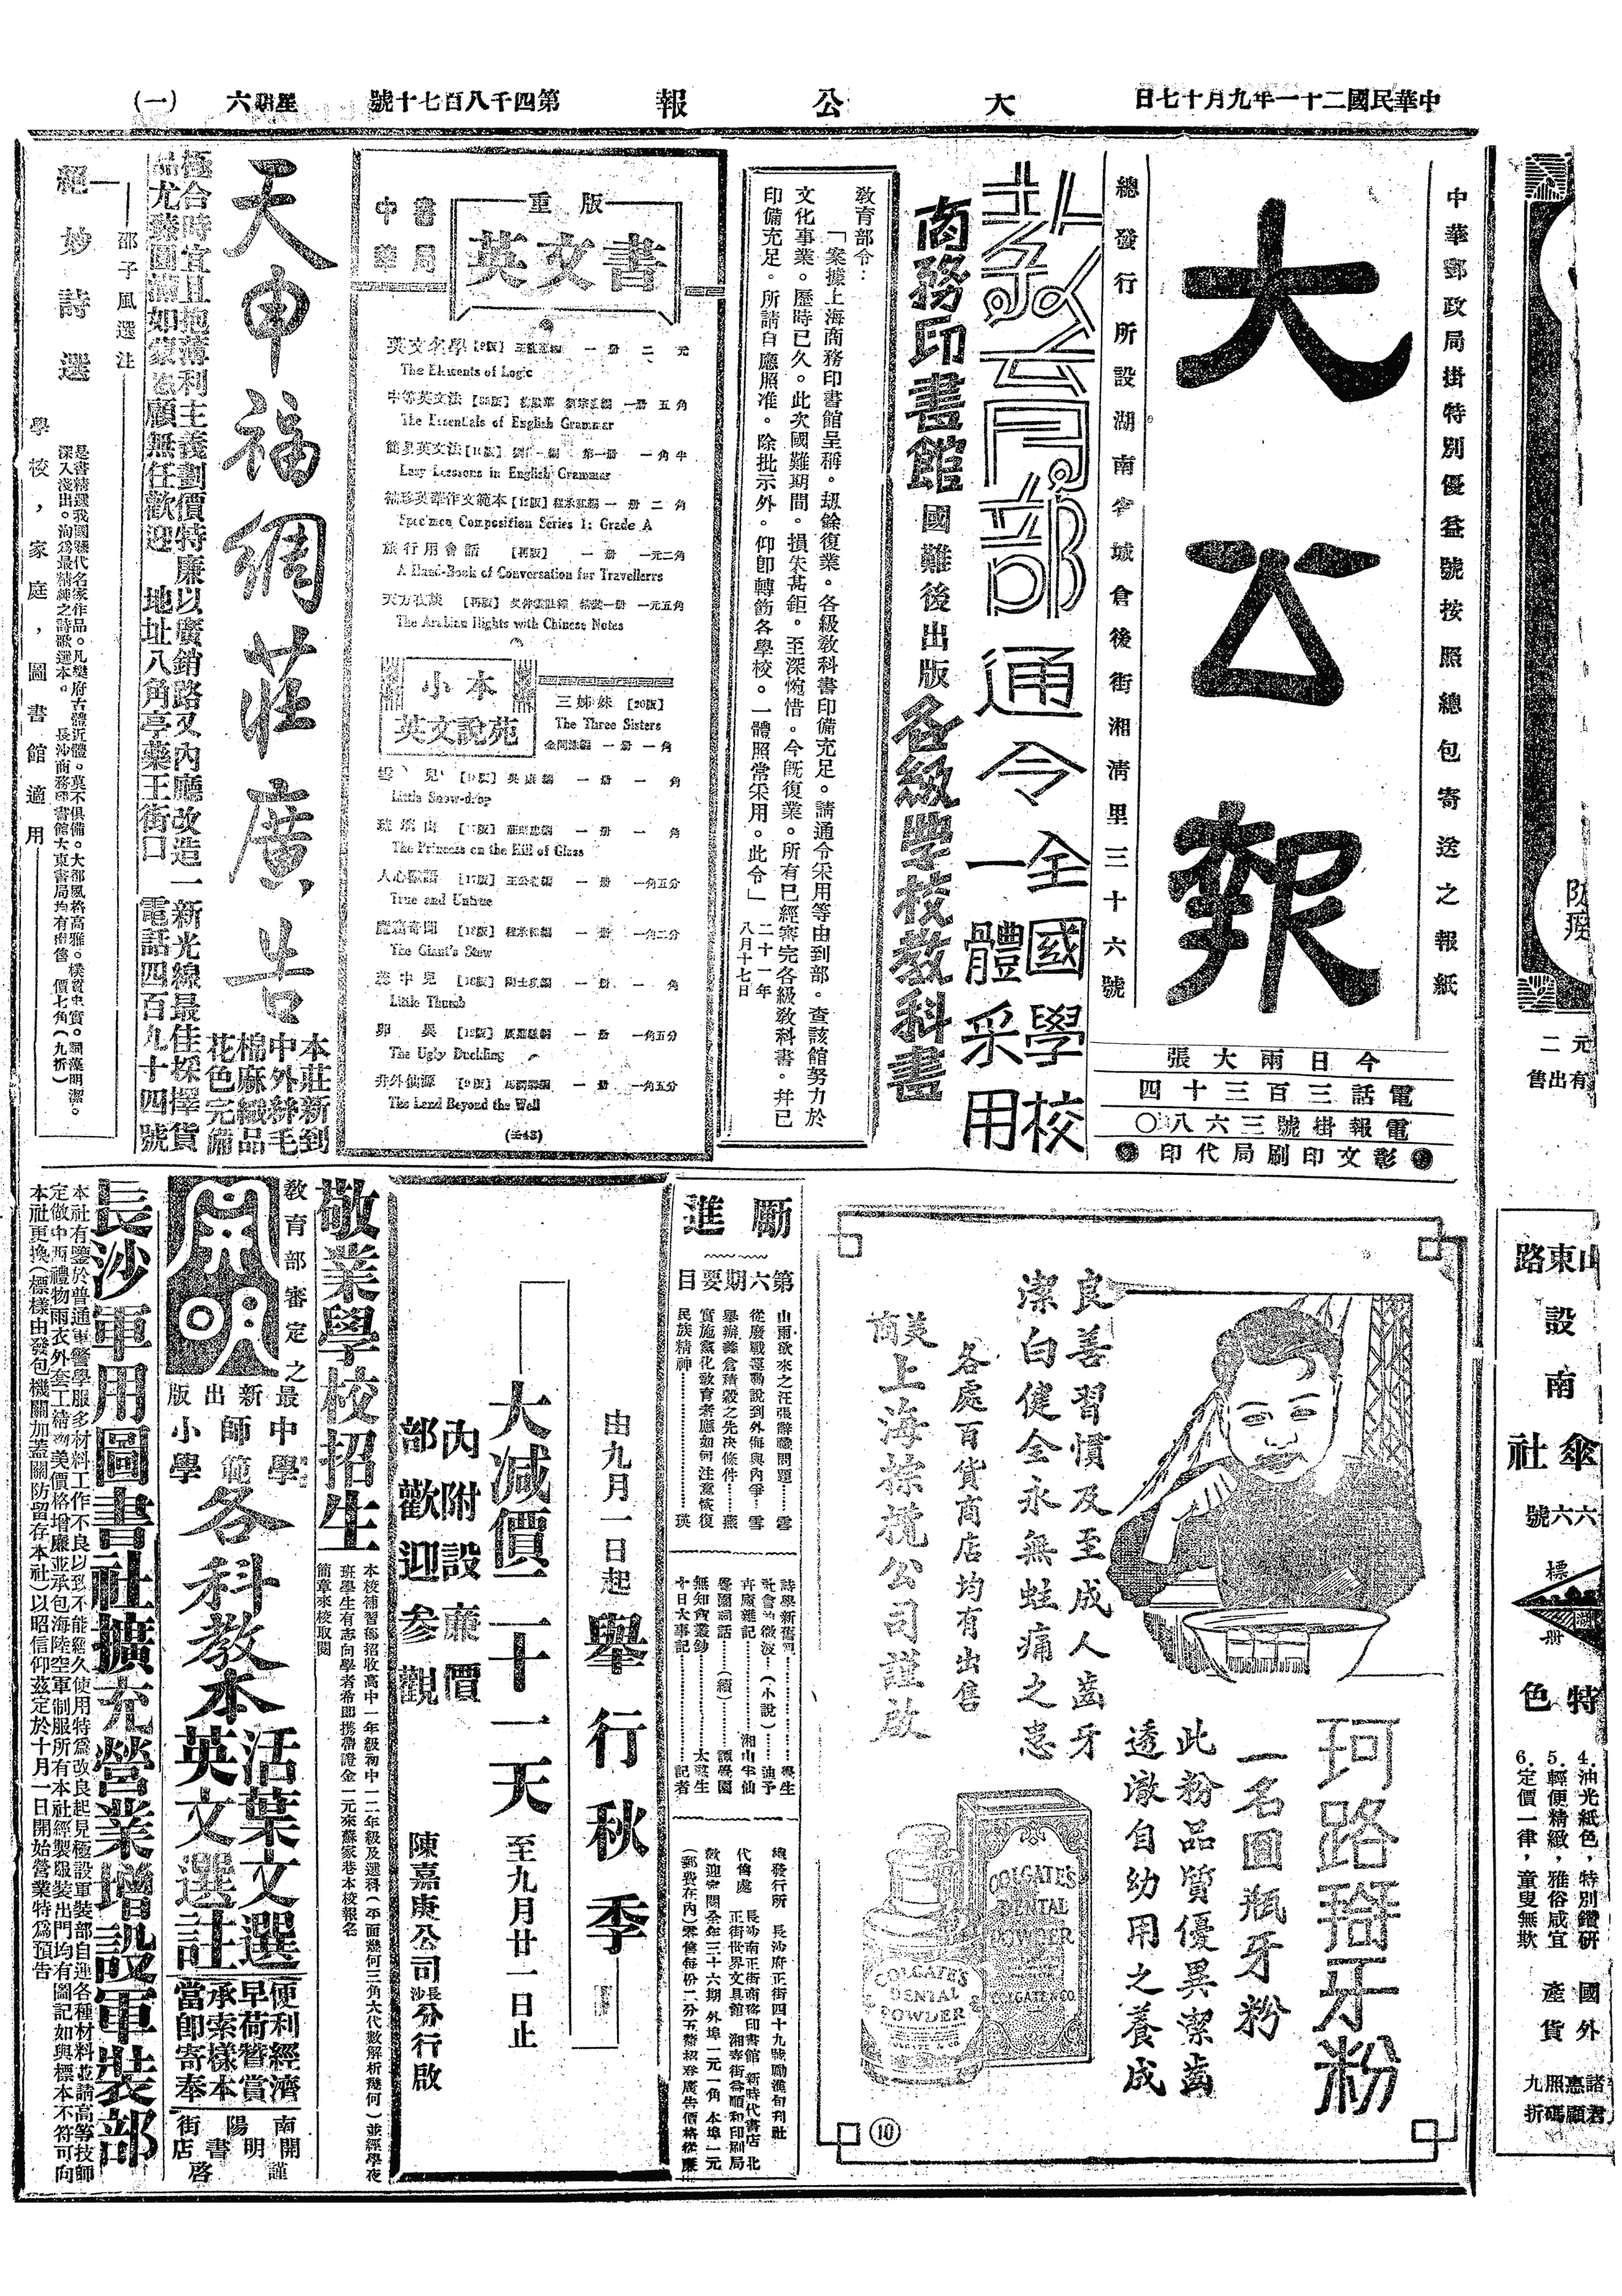 中華民國二十一年九月十七日
大公報
第四千八百七十號
星期六
(一)
中華郵政局掛特別優益號按照總包寄送之報紙
大公報
總發行所設湖南省城倉後街湘清里三十六號
今日兩大張
電話三百三十四
電報掛號三六八〇
彰文印刷局代印
教育部通令全國學校一體采用
商務印書館國難後出版各級學校教科書
教育部令：
「案據上海商務印書館呈稱。刼餘復業。各級教科書印備充足。請通令采用等由到部。查該館努力於
文化事業。歷時已久。此次國難期間。損失甚鉅。至深惋惜。今既復業。所有已經審完各級教科書。幷已
印備充足。所請自應照准。除批示外。仰卽轉飭各學校。一體照常采用。此令」
二十一年
八月十七日
中華書局
重版
英文書
英文名學 一册 二元
The Elements of Logic
中等英文法 一册 五角
The Essentials of English Grammar
簡易英文法 第一册 一角半
Easy Lessons in English Grammar
袖珍英華作文範本 一册 二角
Specimen Composition Series 1: Grade A
旅行用會話 [再版] 一册 一元二角
A Hand-Book of Conversation for Travellers
天方夜談 [再版] 一册 一元五角
The Arabian Nights with Chinese Notes
小本
英文說苑
三姊妹 [20版]
The Three Sisters
一册 一角
雪兒 一册 一角
Little Snow-drop
玻璃山 一册 一角
The Princess on the Hill of Glass
一册 一角五分
True and Untrue
一册 一角二分
The Giant's Stew
一册 一角
Little Thumb
一册 一角五分
The Ugly Duckling
井外仙源 一册 一角五分
The Land Beyond the Well
天申福綢莊廣告
本莊新到
中外絲毛
棉麻織品
花色完備
極合時宜且抱薄利主義劃價特廉以廣銷路又內廳改造一新光線最佳採擇貨
品尤臻圓滿如蒙惠顧無任歡迎 地址八角亭藥王街口 電話四百九十四號
絕妙詩選
邵子風選注
是書精選我國歷代名家作品。凡樂府古體近體。莫不俱備。大都風格高雅。樸質忠實。詞藻明潔。
深入淺出。洵爲最精純之詩歌選本。 長沙商務印書館大東書局均有出售 價七角(九折)
學校，家庭，圖書館適用
珂路搿牙粉
一名固瓶牙粉
此粉品質優異潔齒
透澈自幼用之養成
良善習慣及至成人齒牙
潔白健全永無蛀痛之患
各處百貨商店均有出售
美商
上海棕欖公司謹啟
COLGATE'S
DENTAL
POWDER
COLGATE & CO.
COLGATE'S
DENTAL
POWDER
⑩
勵進
第六期要目
山雨欲來之汪張辭職問題……雲
從廢戰運動說到外侮與內爭…雪
舉辦義倉積穀之先决條件……燕
實施黨化教育者應如何注意恢復
民族精神……瑛
詩學新舊
社會的微波…(小說)
齋廬雜記
詞話…(續)
無知齋叢鈔
十日大事記……記者
總發行所 長沙府正街四十九號勵進旬刊社
代售處 長沙南正街商務印書館 新時代書店 北
正街世界文具館
歡迎定閱全年三十六期 外埠一元一角 本埠一元
由九月一日起舉行秋季
大減價二十一天
至九月廿一日止
內附設廉價
部歡迎參觀
陳嘉庚公司長沙分行啟
敬業學校招生
本校補習部招收高中一年級初中一二年級及選科(平面幾何三角大代數解析幾何)並經學夜
班學生有志向學者希卽携帶證金一元來蘇家巷本校報名
簡章來校取閱
教育部審定之
開明
最新出版
中學
師範
小學
各科教本
活葉文選
英文選註
便利經濟
早荷贊賞
承索樣本
當卽寄奉
南陽街
開明書店
謹啓
長沙軍用圖書社擴充營業增設軍裝部
本社有鑒於普通軍警學服多材料工作不良以致不能經久使用特爲改良起見極設軍裝部自運各種材料並請高等技師
定做中西禮物雨衣外套工精物美價格增廉並承包海陸空軍制服所有本社經製服裝出門均有圖記如與標本不符可向
本社更換(標樣由發包機關加蓋關防留存本社)以昭信仰茲定於十月一日開始營業特爲預告
防疫
元二
有出售
山東路
設南
傘社
六六號
標
册
特色
4.油光紙色，特別鑽硏
5.輕便精緻，雅俗咸宜
6.定價一律，童叟無欺
國外
產貨
諸君惠顧照碼九折